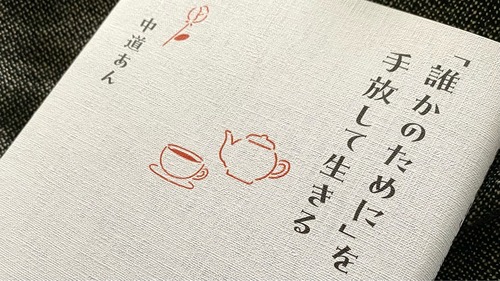 「誰かのために」を
手放して生きる
中道あん